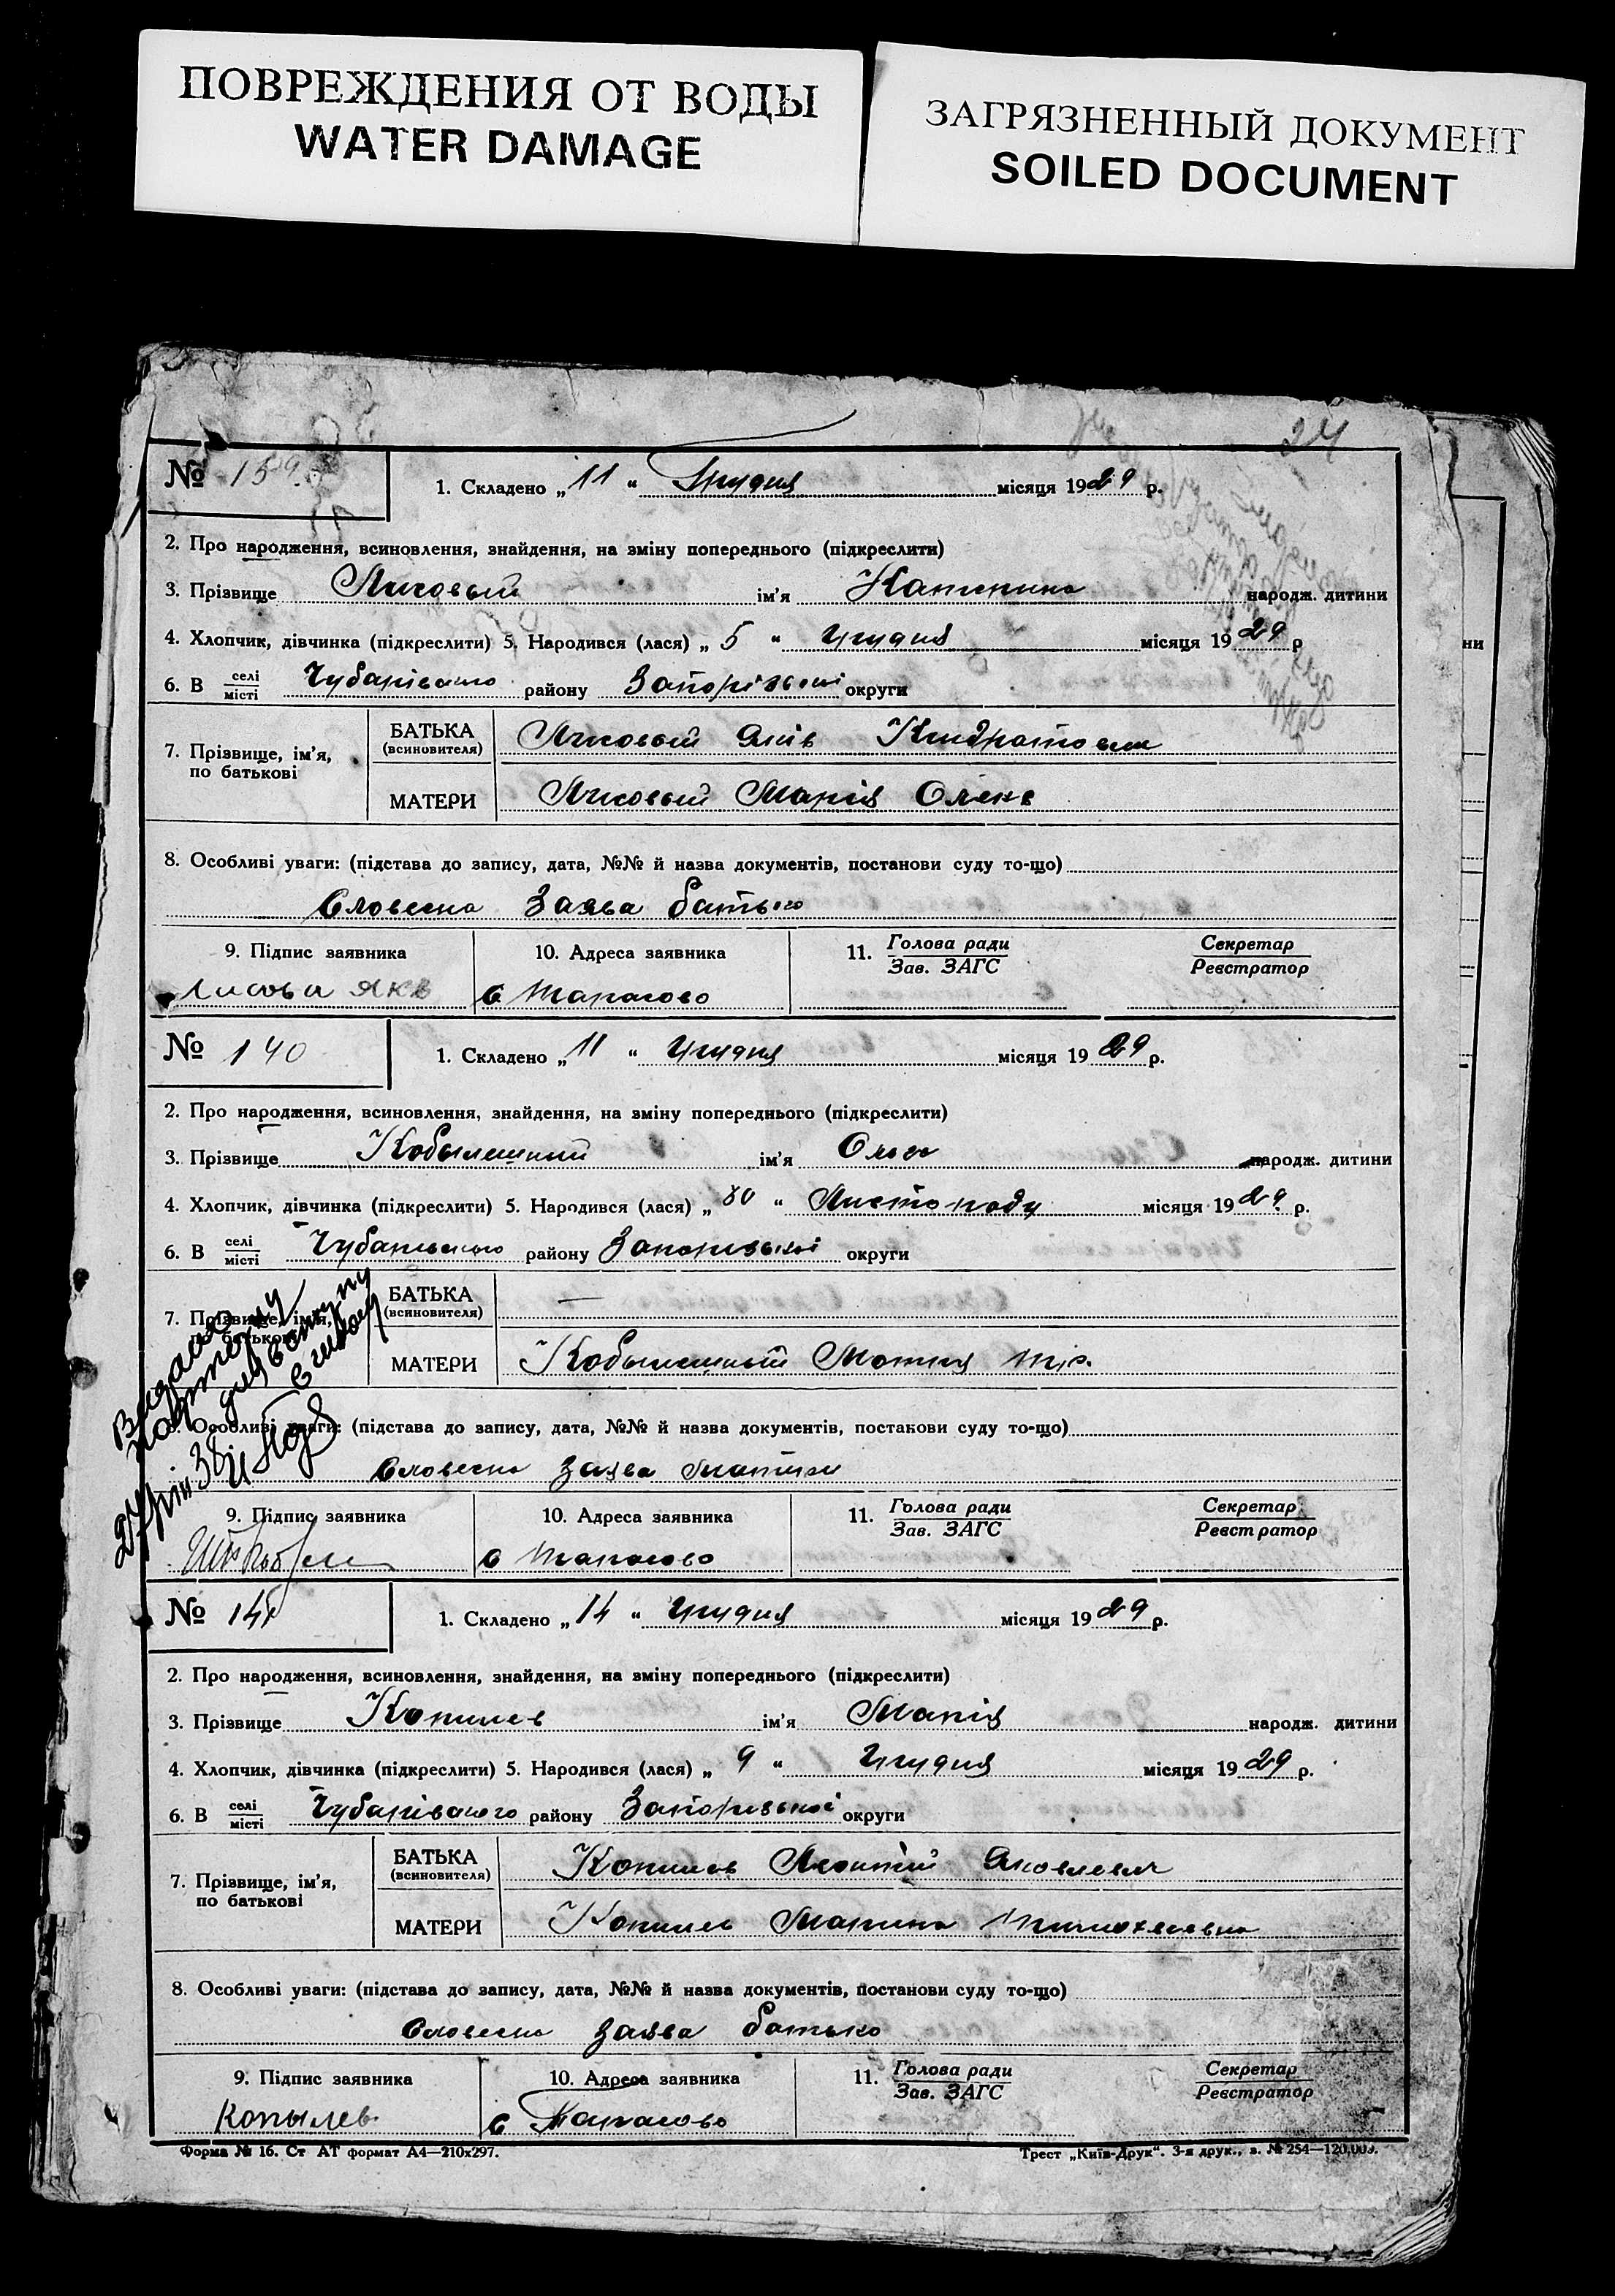 ПОВРЕЖДЕНИЯ ОТ ВОДЫ
WATER DAMAGE
ЗАГРЯЗНЕННЫЙ ДОКУМЕНТ
SOILED DOCUMENT
24
№ 139
1. Складено „ 11 “ Грудня місяця 1929 р.
2. Про народження, всиновлення, знайдення, на зміну попереднього (підкреслити)
3. Прізвище Лисовый ім’я Катерина народж. дитини
4. Хлопчик, дівчинка (підкреслити) 5. Народився (лася) „ 5 “ Грудня місяця 1929 р
6. В селі/місті Чубарівського району Запорізької округи
7. Прізвище, ім’я, по батькові
БАТЬКА (всиновителя) Лисовый Яків Кіндратович
МАТЕРИ Лисовый Марія Олекс
8. Особливі уваги: (підстава до запису, дата, №№ й назва документів, постанови суду то-що)
Словесна Заява батько
9. Підпис заявника
10. Адреса заявника
11. Голова ради/Зав. ЗАГС
Секретар/Реєстратор
с Тарасово
№ 140
1. Складено „ 11 “ Грудня місяця 1929 р.
2. Про народження, всиновлення, знайдення, на зміну попереднього (підкреслити)
3. Прізвище ім’я Ольга народж. дитини
4. Хлопчик, дівчинка (підкреслити) 5. Народився (лася) „ “ Листопаду місяця 1929 р.
6. В селі/місті Чубарівського району Запорізької округи
7. Прізвище, ім’я, по батькові
БАТЬКА (всиновителя) —
МАТЕРИ Мотря
8. Особливі уваги: (підстава до запису, дата, №№ й назва документів, постанови суду то-що)
Словесна заява матери
9. Підпис заявника
10. Адреса заявника
11. Голова ради/Зав. ЗАГС
Секретар/Реєстратор
с Тарасово
№ 141
1. Складено „ 14 “ Грудня місяця 1929 р.
2. Про народження, всиновлення, знайдення, на зміну попереднього (підкреслити)
3. Прізвище Копилев ім’я Марія народж. дитини
4. Хлопчик, дівчинка (підкреслити) 5. Народився (лася) „ 9 “ Грудня місяця 1929 р.
6. В селі/місті Чубарівського району Запорізької округи
7. Прізвище, ім’я, по батькові
БАТЬКА (всиновителя) Копилев Леонтій Яковлевич
МАТЕРИ Копилев Марина
8. Особливі уваги: (підстава до запису, дата, №№ й назва документів, постанови суду то-що)
Словесна заява батько
9. Підпис заявника
10. Адреса заявника
11. Голова ради/Зав. ЗАГС
Секретар/Реєстратор
Копылев
с Тарасово
Форма № 16. Ст АТ формат А4—210х297.
Трест „Київ-Друк“. 3-я друк., з. № 254—120.000.